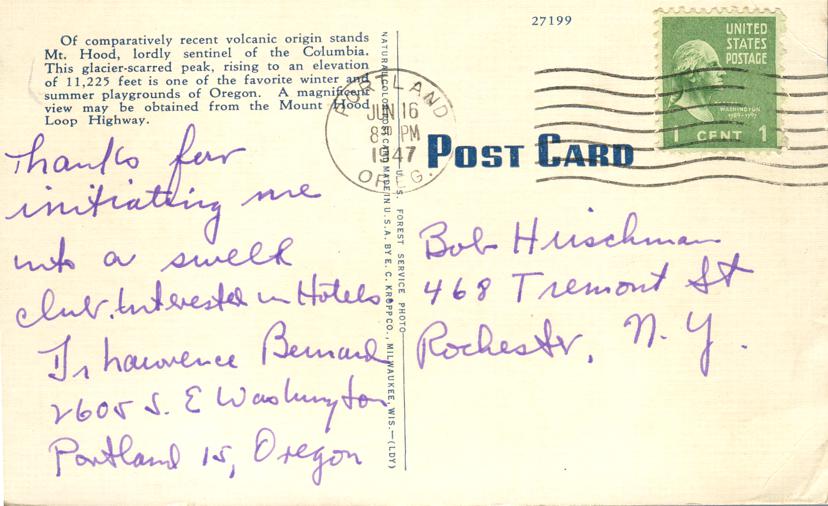 27199
Of comparatively recent volcanic origin stands
Mt. Hood, lordly sentinel of the Columbia.
This glacier-scarred peak, rising to an elevation
of 11,225 feet is one of the favorite winter and
summer playgrounds of Oregon. A magnificent
view may be obtained from the Mount Hood
Loop Highway.
Thanks for
initiating me
into a swell
club. Interested in Hotels
Lawrence Bernard
2605 S. E Washington
Portland 15, Oregon
NATURAL COLOR POST CARD MADE IN U. S. A. BY E. C. KROPP CO., MILWAUKEE, WIS.—(LDY)
U. S. FOREST SERVICE PHOTO
PORTLAND
JUN 16
8 PM
1947
OREG.
UNITED
STATES
POSTAGE
WASHINGTON
1789-1797
1 CENT 1
POST CARD
Bob Hirschman
468 Tremont St
Rochester, N. Y.